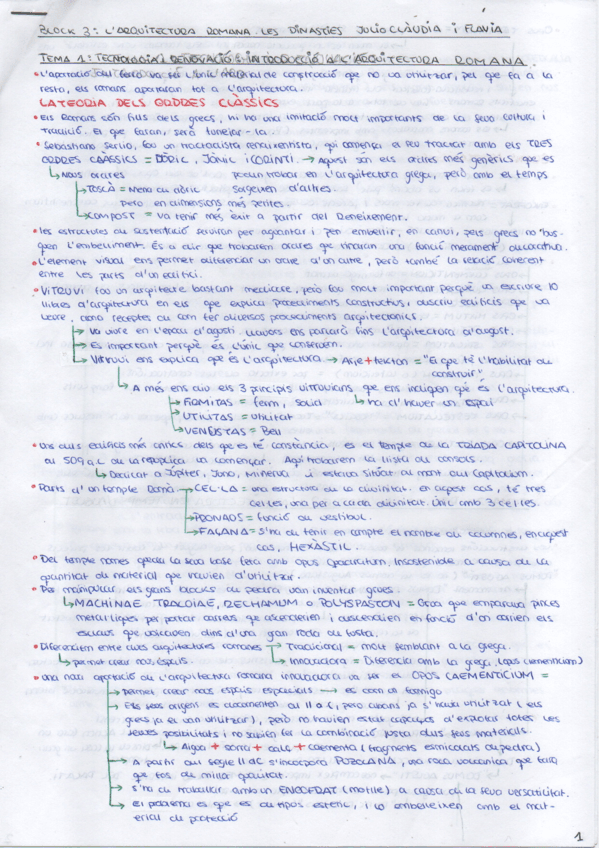 BLOCK 3: L'ARQUITECTURA ROMANA. LES DINASTIES JULIOCLÀUDIA i FLÀVIA
TEMA 1: TECNOLOGIA I RENOVACIÓ: INTRODUCCIÓ A L'ARQUITECTURA ROMANA.
• L'aportació del ferro va ser l'únic material de construcció que no va utilitzar, pel que fa a la
resta, els romans aportaran tot a l'arquitectura.
LA TEORIA DELS ORDRES CLÀSSICS
• Els Romans són fills dels grecs, hi ha una imitació molt importants de la seva cultura i
tradició. El que faran, serà tunejar-la.
• Sebastiano Serlio, fou un tractadista renaixentista, qui comença el seu tractat amb els TRES
ORDRES CLÀSSICS = DÒRIC, JÒNIC i CORINTI. → Aquest són els ordres més genèrics que es
↳ Nous ordres podun trobar en l'arquitectura grega, però amb el temps
→ TOSCÀ = Menu au dòric sorgeixen d'altres.
però en dimensions més petites.
→ COMPOST = va tenir més èxit a partir del Renaixement.
• les estructures de sustentació serviran per aguantar i per embellir, en canvi, pels grecs no bus-
quen l'embelliment. És a dir que trobarem ordres que tindran una funció merament decorativa.
• L'element visual ens permet diferenciar un ordre d'un altre, però també la relació coherent
entre les parts d'un edifici.
• VITRUVI fou un arquitecte bastant mediocre, però fou molt important perquè va escriure 10
llibres d'arquitectura en els que explica procediments constructius, descriu edificis que va
veure, dona receptes de com fer diversos procediments arquitectònics.
→ Va viure en l'època d'August. Llavors ens parlarà fins l'arquitectura d'august.
→ És important perquè és l'únic que conservem.
→ Vitruvi ens explica què és l'arquitectura → Arje + tekton = "El que té l'habilitat de
construir"
↳ A més ens diu els 3 principis vitruvians que ens indiquen què és l'arquitectura.
→ FIRMITAS = ferm, sòlid ↳ Ha d'haver un espai
→ UTILITAS = utilitat
→ VENUSTAS = Bell
• Un dels edificis més antics dels que es té constància, és el temple de la TRIADA CAPITOLINA
del 509 a.C. on la república va començar. Aquí trobarem la llista de cònsols.
↳ Dedicat a Júpiter, Juno, Minerva i estava situat al mont del Capitolium.
• Parts d'un temple Romà → CEL·LA = una estructura de la divinitat. en aquest cas, té tres
cel·les, una per a cada divinitat. Únic amb 3 cel·les.
→ PRONAOS = funció de vestíbul.
→ FAÇANA = s'ha de tenir en compte el nombre de columnes, en aquest
cas, HEXÀSTIL.
• Del temple només queda la seva base feta amb opus quadratum, insostenible a causa de la
quantitat de material que havien d'utilitzar.
• Per manipular els grans blocks de pedra van inventar grues.
↳ MACHINAE TRACOIAE, RECHAMUM o POLYSPASTON = Grua que emparava pinces
metal·liques per portar carreus que ascendeixen i descendeixen en funció d'on corrien els
esclaus que volcaven dins d'una gran roda de fusta.
• Diferenciem entre dues arquitectures romanes → Tradicional = molt semblant a la grega.
↳ permet crear nous espais. → Innovadora = Diferencia amb la grega. (opus caementicium)
• Una nova aportació de l'arquitectura romana innovadora va ser el OPUS CAEMENTICIUM =
→ Permet crear nous espais especials → és com el formigó
→ Els seus orígens es documenten al II a.C, però abans ja s'havia utilitzat (els
grecs ja el van utilitzar), però no havien estat capaços d'explotar totes les
seves possibilitats i no sabien fer la combinació justa dels seus materials.
↳ Aigua + sorra + calç + caementa (fragments esmicolats de pedra)
→ A partir del segle II dC s'incorpora PUZOLANA, una roca volcànica que farà
que fos de millor qualitat.
→ s'ha de treballar amb un ENCOFRAT (motlle) a causa de la seva versatilitat.
→ El problema és que és de tipus estètic, i ho embelleixen amb el mat-
erial de protecció
1